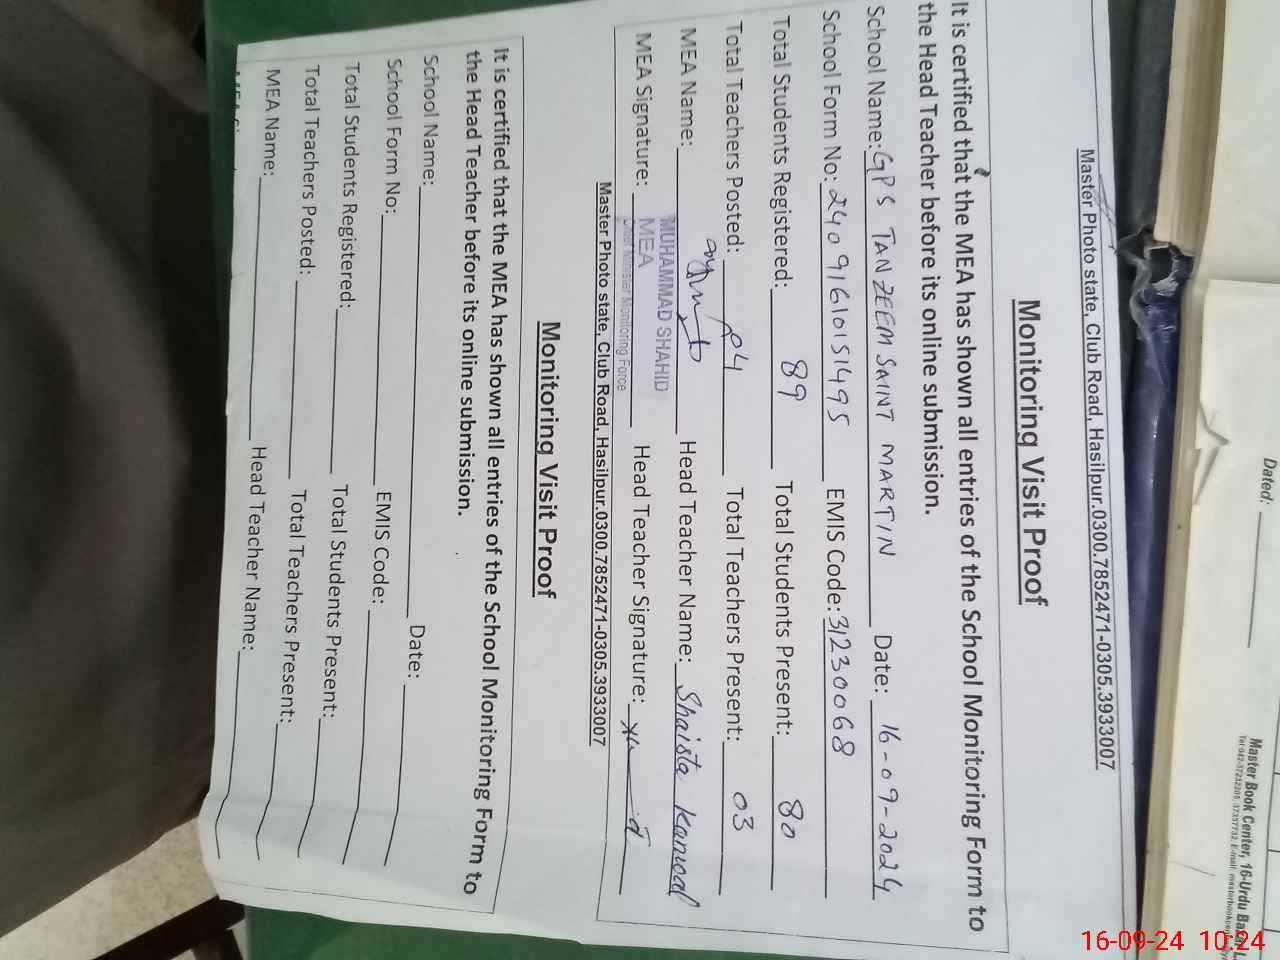 Master Photo state, Club Road, Hasilpur.0300.7852471-0305.3933007
Monitoring Visit Proof
It is certified that the MEA has shown all entries of the School Monitoring Form to
the Head Teacher before its online submission.
School Name: GPS TANZEEM SAINT MARTIN Date: 16-09-2024
School Form No: 24091610151495 EMIS Code: 31230068
Total Students Registered: 89 Total Students Present: 80
Total Teachers Posted: 04 Total Teachers Present: 03
MEA Name: Head Teacher Name: Shaista Kanwal
MUHAMMAD SHAHID
MEA Signature: Head Teacher Signature:
MEA
Chief Minister Monitoring Force
Master Photo state, Club Road, Hasilpur.0300.7852471-0305.3933007
Monitoring Visit Proof
It is certified that the MEA has shown all entries of the School Monitoring Form to
the Head Teacher before its online submission.
School Name: Date:
School Form No: EMIS Code:
Total Students Registered: Total Students Present:
Total Teachers Posted: Total Teachers Present:
MEA Name: Head Teacher Name:
Dated:
Master Book Center, 16-Urdu
16-09-24 10:24